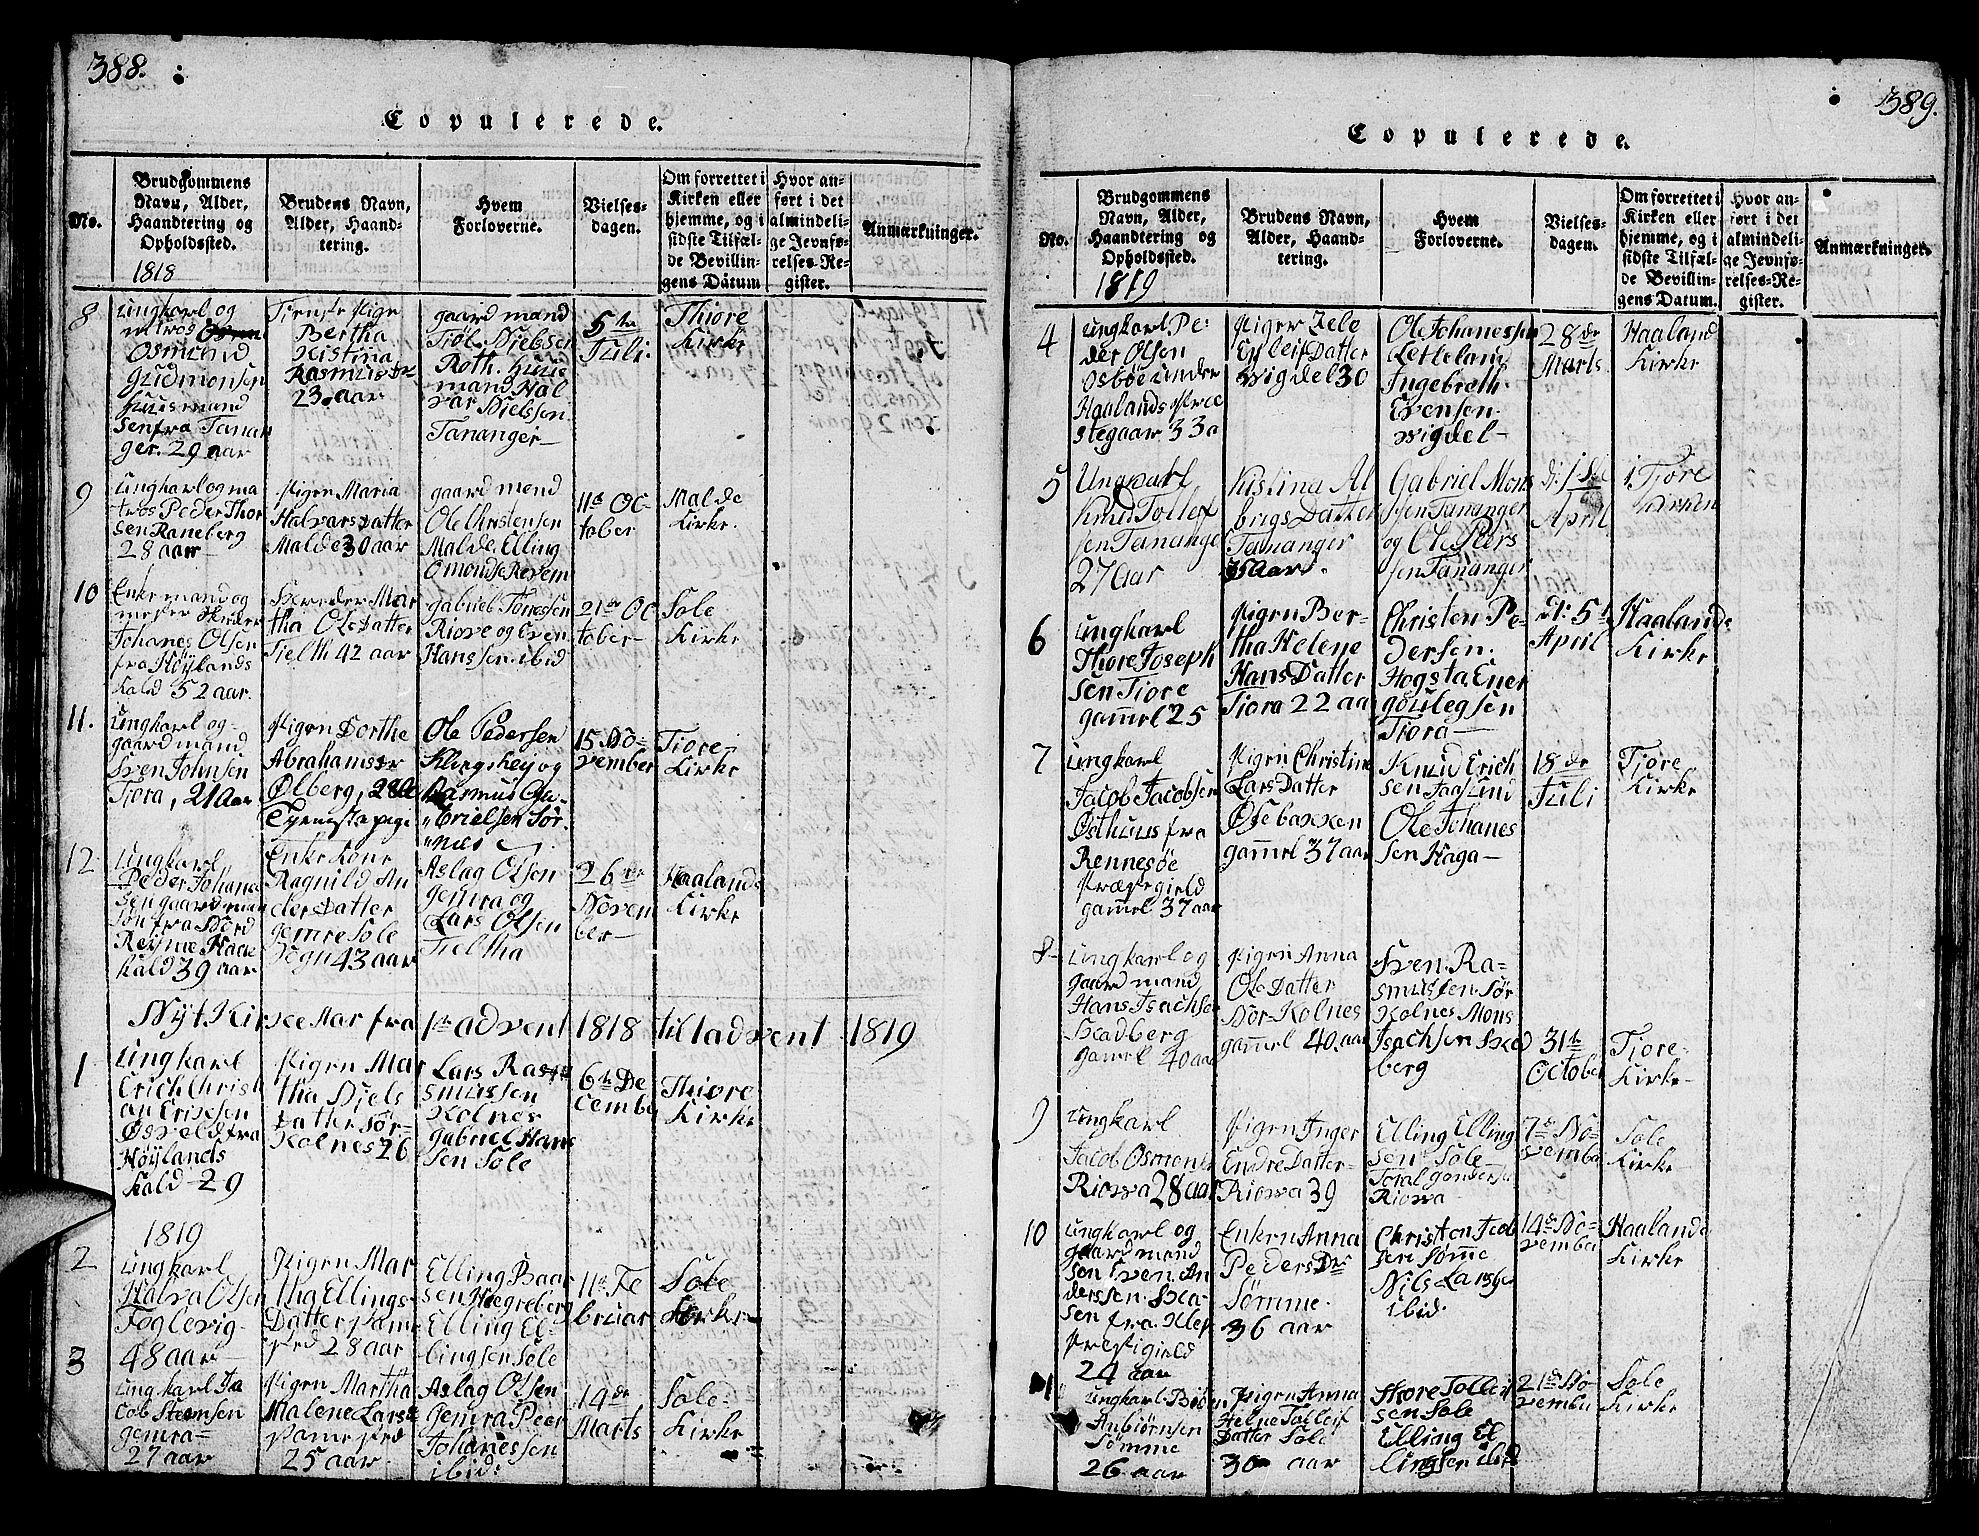 388.
Copulerede.
No.
Brudgommens
Navn, Alder,
Haandtering og
Opholdssted.
1818
Brudens Navn,
Alder, Haand-
tering.
Hvem
Forloverne.
Vielses-
dagen.
Om forrettet i
Kirken eller
hjemme, og i
sidste Tilfæl-
de Bevillin-
gens Datum
Hvor an-
ført i det
almindeli-
ge Jevnfø-
relses-Re-
gister.
Anmærkninger.
8
ungkarl og
matros
Osmund
Gudmonsen
huusmand
fra Tanan
ger. 29 aar
Tieneste Pige
Bertha
Kistina
Rasmusdr
23 aar
gaard mand
Niels
Roth. Huus
mand Hal
var Nielssen
Tananger
5te
Juli.
Thiore
Kirke
9
ungkarl og ma
tros Peder Thor
sen Raneberg
28 aar
Pigen Maria
Halvars Datter
Malde 30 aar
gaard mend
Ole Christensen
Malde. Elling
11te Oc
tober
Malde
Kirke.
10
Enke mand og
mester
Johanes Olsen
fra Höylands
kald 52 aar.
Mar
tha Ole Datter
42 aar
Gabriel Tönessen
og Even
Hanssen ibid
21de Oc
tober
Sole
Kirke
11.
ungkarl og
gaard mand
Sven Johnsen
Tjora, 21 Aar
Pigen Dorthe
Abrahamsdr
Ølberg,
Tjenestepige
Ole Pedersen
og
Rasmus Ga-
brielsen Sör-
næs
15 No-
vember
Tiore
Kirke
12
ungkarl
Peder Johane
sen gaard man
søn fra Nord
Haae
kald 39 aar
Enke kone
Ragnild An
ders datter
gemre Sole
Sogn 43 aar
Aslag Olsen
gemra og
Lars Olsen
Tieltha
26de
Novem
ber
Haalands
Kirke
Nÿt Kirke Aar fra 1te advent 1818 til 1 advent 1819
1
ungkarl
Erich Christi
an Ericsen
fra
Höylands
kald 29
Pigen Mar
tha Niels
Datter Sør-
Kolnes 26
Lars Ras
mussen
Kolnes
Gabriel Hans
sen Sole
6te De
cember
Thiore
Kirke
1819
2
ungkarl
Halva Olsen
Foglevig
48 aar
Pigen Mar
tha Ellings-
Datter
28 aar
Elling Baar
sen Hegreberg
Elling El-
lingsen Sole
11te Fe
bruar
Sole
Kirke
3
ungkarl Ja
cob
gemra
27 aar
Pigen Martha
Malene Lars
25 aar
Aslag Olsen
gemra Peer
Johanessen
ibid:
14de
Marts
Sole
Kirke
389.
Copulerede.
No.
Brudgommens
Navn, Alder,
Haandtering og
Opholdssted.
1819
Brudens Navn,
Alder, Haand-
tering.
Hvem
Forloverne.
Vielses-
dagen.
Om forrettet i
Kirken eller
hjemme, og i
sidste Tilfæl-
de Bevillin-
gens Datum.
Hvor an-
ført i det
almindeli-
ge Jevnfø-
relses-Re-
gister.
Anmærkninger.
4
ungkarl Pe-
der Olsen
Osböe under
Haalands Præ
stegaar 33 a
Pigen Zele
Datter
Wigdel 30
Ole Johanessen
Ingebreth
Evensen
Wigdel
28de
Marts
Haaland
Kirke
5
Ungkarl
Knud Tollef
sen Tanange
27 Aar
Kistina Al
brigs Datter
Tananger
Aar.
Gabriel Mons
sen Tananger
og Ole Peers
sen Tananger
April
i Tjore
Kirken
6
ungkarl
Thore Joseph
sen Tiore
gam̄el 25
Pigen Ber-
tha Helene
Hans Datter
Tiora 22 aa
Christen Pe-
dersen.
Hogsta. Ener
Tjora
D: 5te
April
Haalands
Kirke
7
ungkarl
Jacob Jacobsen
Østhuus fra
Rennesöe
Præstegield
gam̄el 37 aar
Pigen Christine
Lars Datter
gam̄el 37 aar
Knud Erich
sen
Ole Johanes
sen Haga
18de
Juli
Tjore
Kirke
8
ungkarl og
gaard mand
Hans Isachse
gam̄el 40 aar
Pigen Anna
Ole Datter
Nor-Kolnes
gam̄el 40. aar
Sven Ra-
smussen. Sør
Kolnes Mons
Isachsen
berg
31te
October
Tjore
Kirke
9
ungkarl
Jacob Osmon
28 aar
Pigen Inger
Endre Datter
39
Elling Elling
sen Sole
7de No-
vember
Sole
Kirke
10
ungkarl og
gaard mand
Sven An
derssen
sen fra Klep
Præstigield
24 aar
Enken Anna
Peders Dr
Sömme
36 aar
Christen Jacob
sen Sömme
Nils Larsen
ibid.
14de No-
vember
Haalands
Kirke
11
ungkarl Biörn
Anbiörnsen
Sömme
26 aar
Pigen Anna
Helne Tolleif
Datter Sole
30 aar
Thore Tolleif
sen Sole
Elling El
lingsen ibid
21de No-
vember
Sole
Kirke